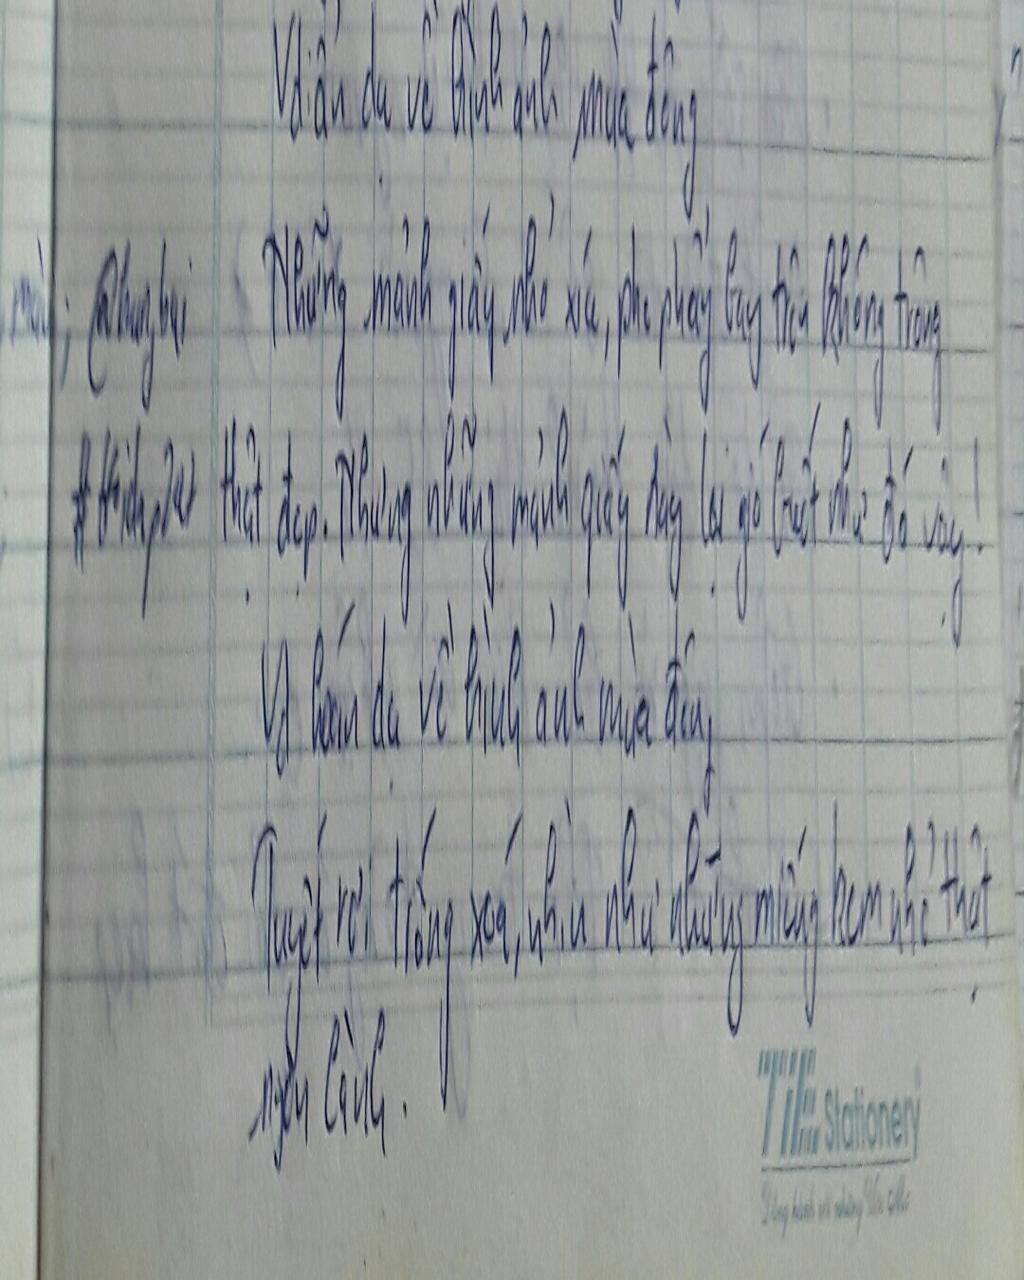 Vd ẩn dụ về hình ảnh mùa đông
Những mảnh giấy nhỏ xíu, phe phẩy bay trên không trông
thật đẹp. Nhưng những mảnh giấy này lại giá buốt như đá vậy!
Vd hoán dụ về hình ảnh mùa đông
Tuyết rơi trắng xoá, nhìn như những miếng kem nhỏ thật
ngon lành.
Stationery